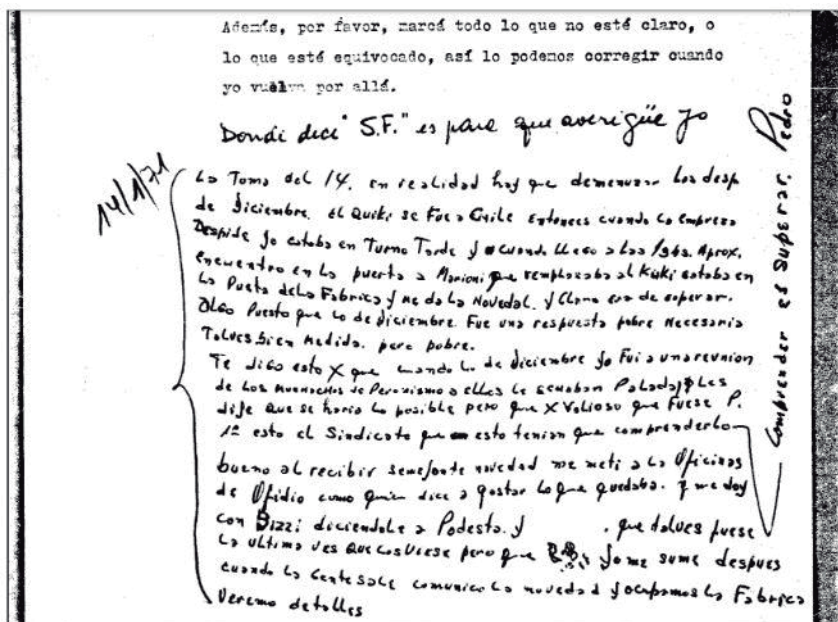 Además, por favor, marcá todo lo que no esté claro, o
lo que esté equivocado, así lo podemos corregir cuando
yo vuelva por allá.
Donde dice "S.F." es para que averigüe yo
14/1/71
La Toma del 14. en realidad hay que demenusar Los desp
de Diciembre. El Quiki se Fue a Chile Entonces cuando La Empresa
Despide yo estaba en Turno Tarde y cuando LLego a Las Aprox.
encuentro en La puerta a Marioni que remplazaba al Kuki estaba en
La Puerta de La Fabrica y me da La Novedad. y Claro era de esperar.
Digo Puesto que Lo de Diciembre. Fue una respuesta pobre Necesaria
Talves bien Medida. pero pobre.
Te digo esto X que cuando Lo de Diciembre yo Fui a una reunion
de Los Muchachos de Peronismo a elles Le y Les
dije que se haria Lo posible pero que X Valioso que Fuese P.
1º esto el Sindicato que esto tenian que comprenderlo
bueno al recibir semejante novedad me meti a La Oficinas
de Ofidio como quien dice a gastar Lo que quedaba. y me doy
con Bizzi diciendole a Podesta. y . que talves fuese
La ultima ves que Los Viese pero que yo me sume despues
cuando La Gente sale comunico La novedad y ocupamos La Fabrica
Veremo detalles
Comprender es superar. Pedro